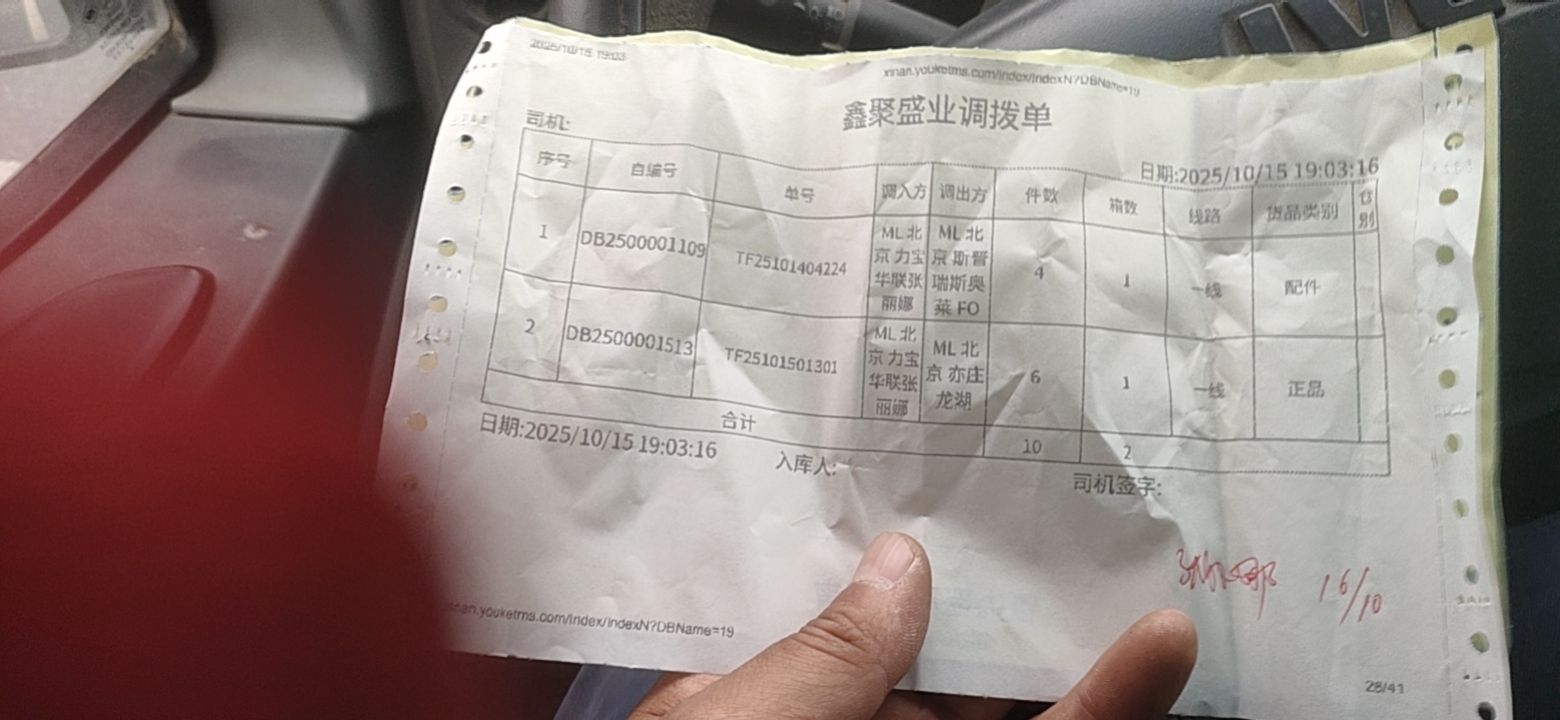 2025/10/15 19:03
xinan.youketms.com/Index/IndexN?DBName=19
鑫聚盛业调拨单
司机:
日期:2025/10/15 19:03:16
序号 自编号 单号 调入方 调出方 件数 箱数 线路 货品类别 别
1 DB2500001109 TF25101404224 ML 北京 力宝华联张丽娜 ML 北京 斯普瑞斯奥莱 FO 4 1 一线 配件
2 DB2500001513 TF25101501301 ML 北京 力宝华联张丽娜 ML 北京 亦庄龙湖 6 1 一线 正品
合计 10 2
日期:2025/10/15 19:03:16
入库人:
司机签字:
16/10
xinan.youketms.com/Index/IndexN?DBName=19
28/41